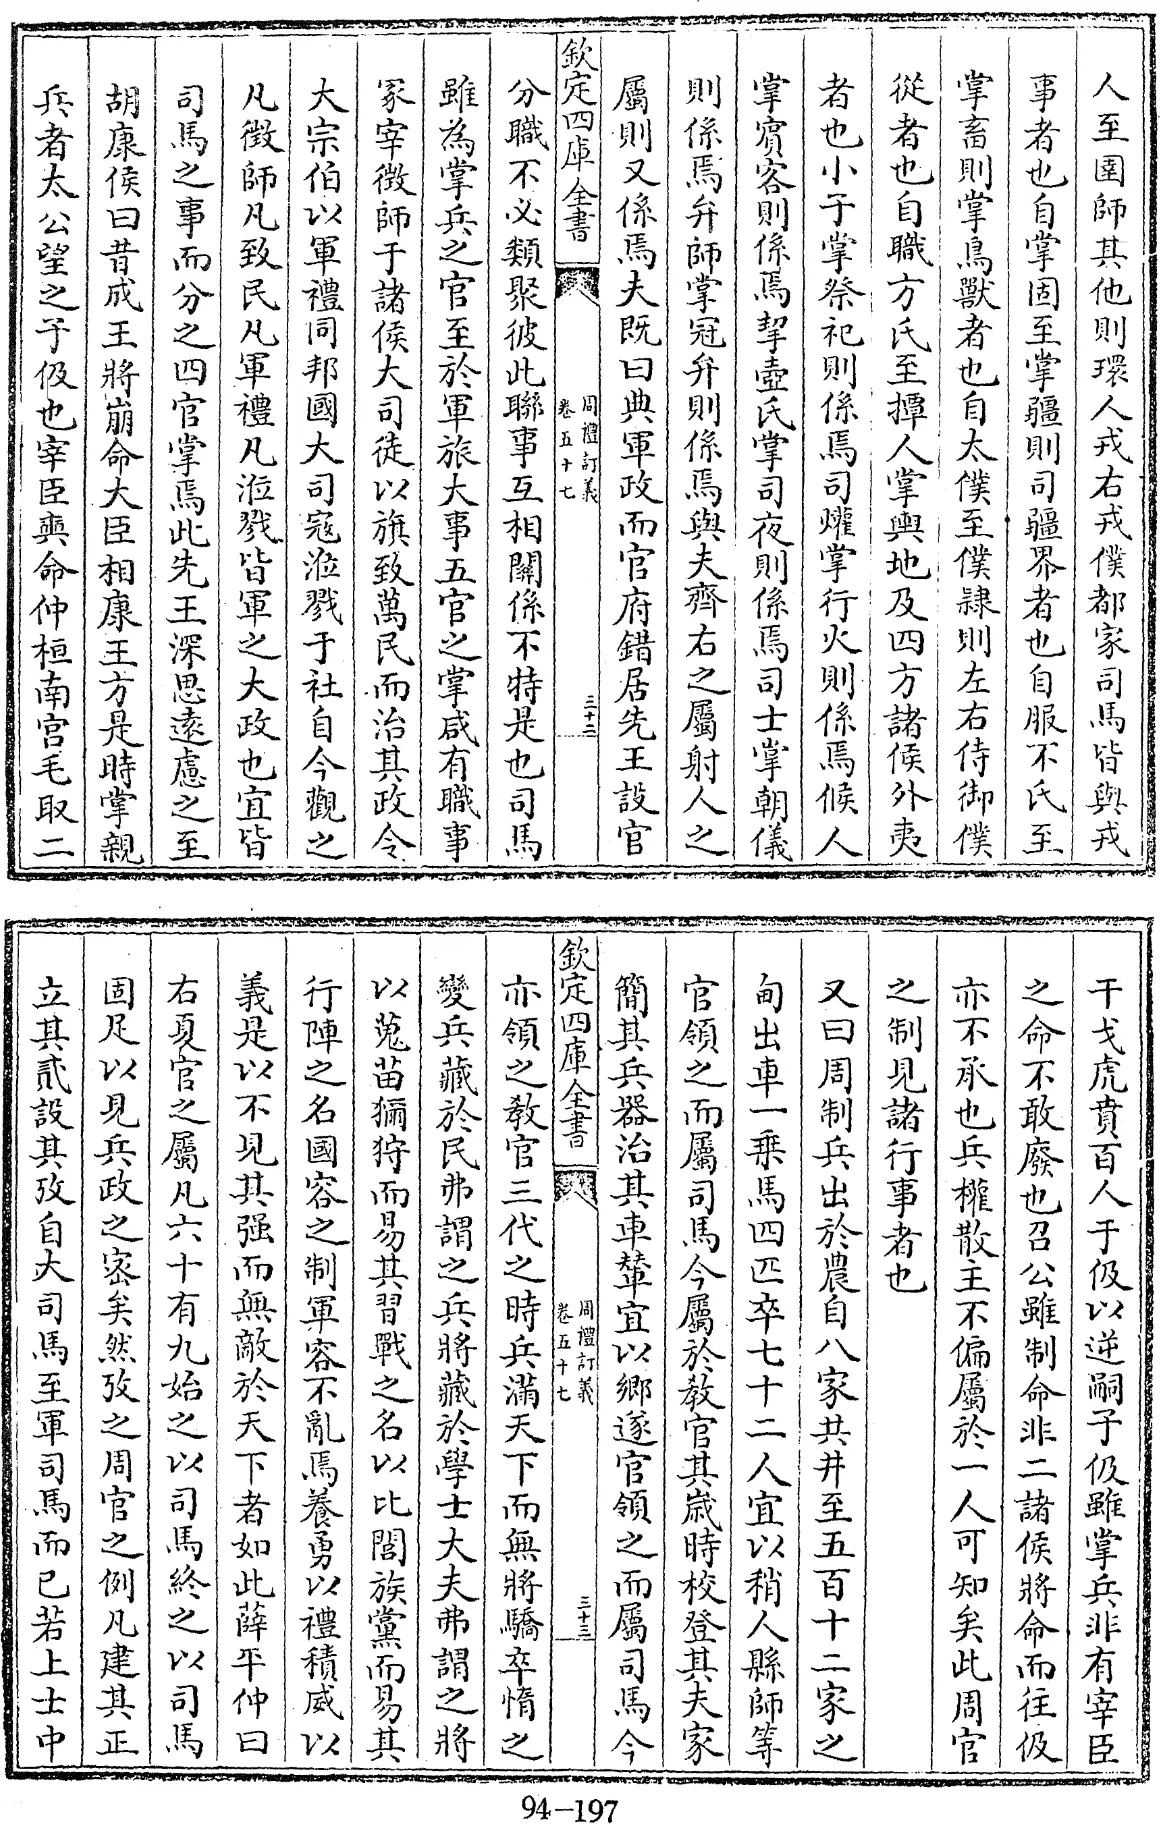 人至圉師其他則環人戎右戎僕都家司馬皆與戎
事者也自掌固至掌疆則司疆界者也自服不氏至
掌畜則掌鳥獸者也自太僕至僕隷則左右侍御僕
從者也自職方氏至撢人掌輿地及四方諸侯外夷
者也小子掌祭祀則係焉司爟掌行火則係焉候人
掌賓客則係焉挈壺氏掌司夜則係焉司士掌朝儀
則係焉弁師掌冠弁則係焉與夫齊右之屬射人之
屬則又係焉夫既曰典軍政而官府錯居先王設官
欽定四庫全書
周禮訂義
卷五十七
三十二
分職不必類聚彼此聯事互相關係不特是也司馬
雖為掌兵之官至於軍旅大事五官之掌咸有職事
冢宰徴師于諸侯大司徒以旗致萬民而治其政令
大宗伯以軍禮同邦國大司寇涖戮于社自今觀之
凡徴師凡致民凡軍禮凡涖戮皆軍之大政也宜皆
司馬之事而分之四官掌焉此先王深思遠慮之至
胡康侯曰昔成王將崩命大臣相康王方是時掌親
兵者太公望之子伋也宰臣奭命仲桓南宫毛取二
干戈虎賁百人于伋以逆嗣子伋雖掌兵非有宰臣
之命不敢廢也召公雖制命非二諸侯將命而往伋
亦不承也兵權散主不偏屬於一人可知矣此周官
之制見諸行事者也
又曰周制兵出於農自八家共井至五百十二家之
甸出車一乗馬四匹卒七十二人宜以稍人縣師等
官領之而屬司馬今屬於敎官其嵗時校登其夫家
簡其兵器治其車輦宜以鄉遂官領之而屬司馬今
欽定四庫全書
周禮訂義
卷五十七
三十三
亦領之敎官三代之時兵滿天下而無將驕卒惰之
變兵藏於民弗謂之兵將藏於學士大夫弗謂之將
以蒐苗獮狩而易其習戰之名以比閭族黨而易其
行陣之名國容之制軍容不亂焉養勇以禮積威以
義是以不見其强而無敵於天下者如此薛平仲曰
右夏官之屬凡六十有九始之以司馬終之以司馬
固足以見兵政之宻矣然攷之周官之例凡建其正
立其貳設其攷自大司馬至軍司馬而已若上士中
94-197